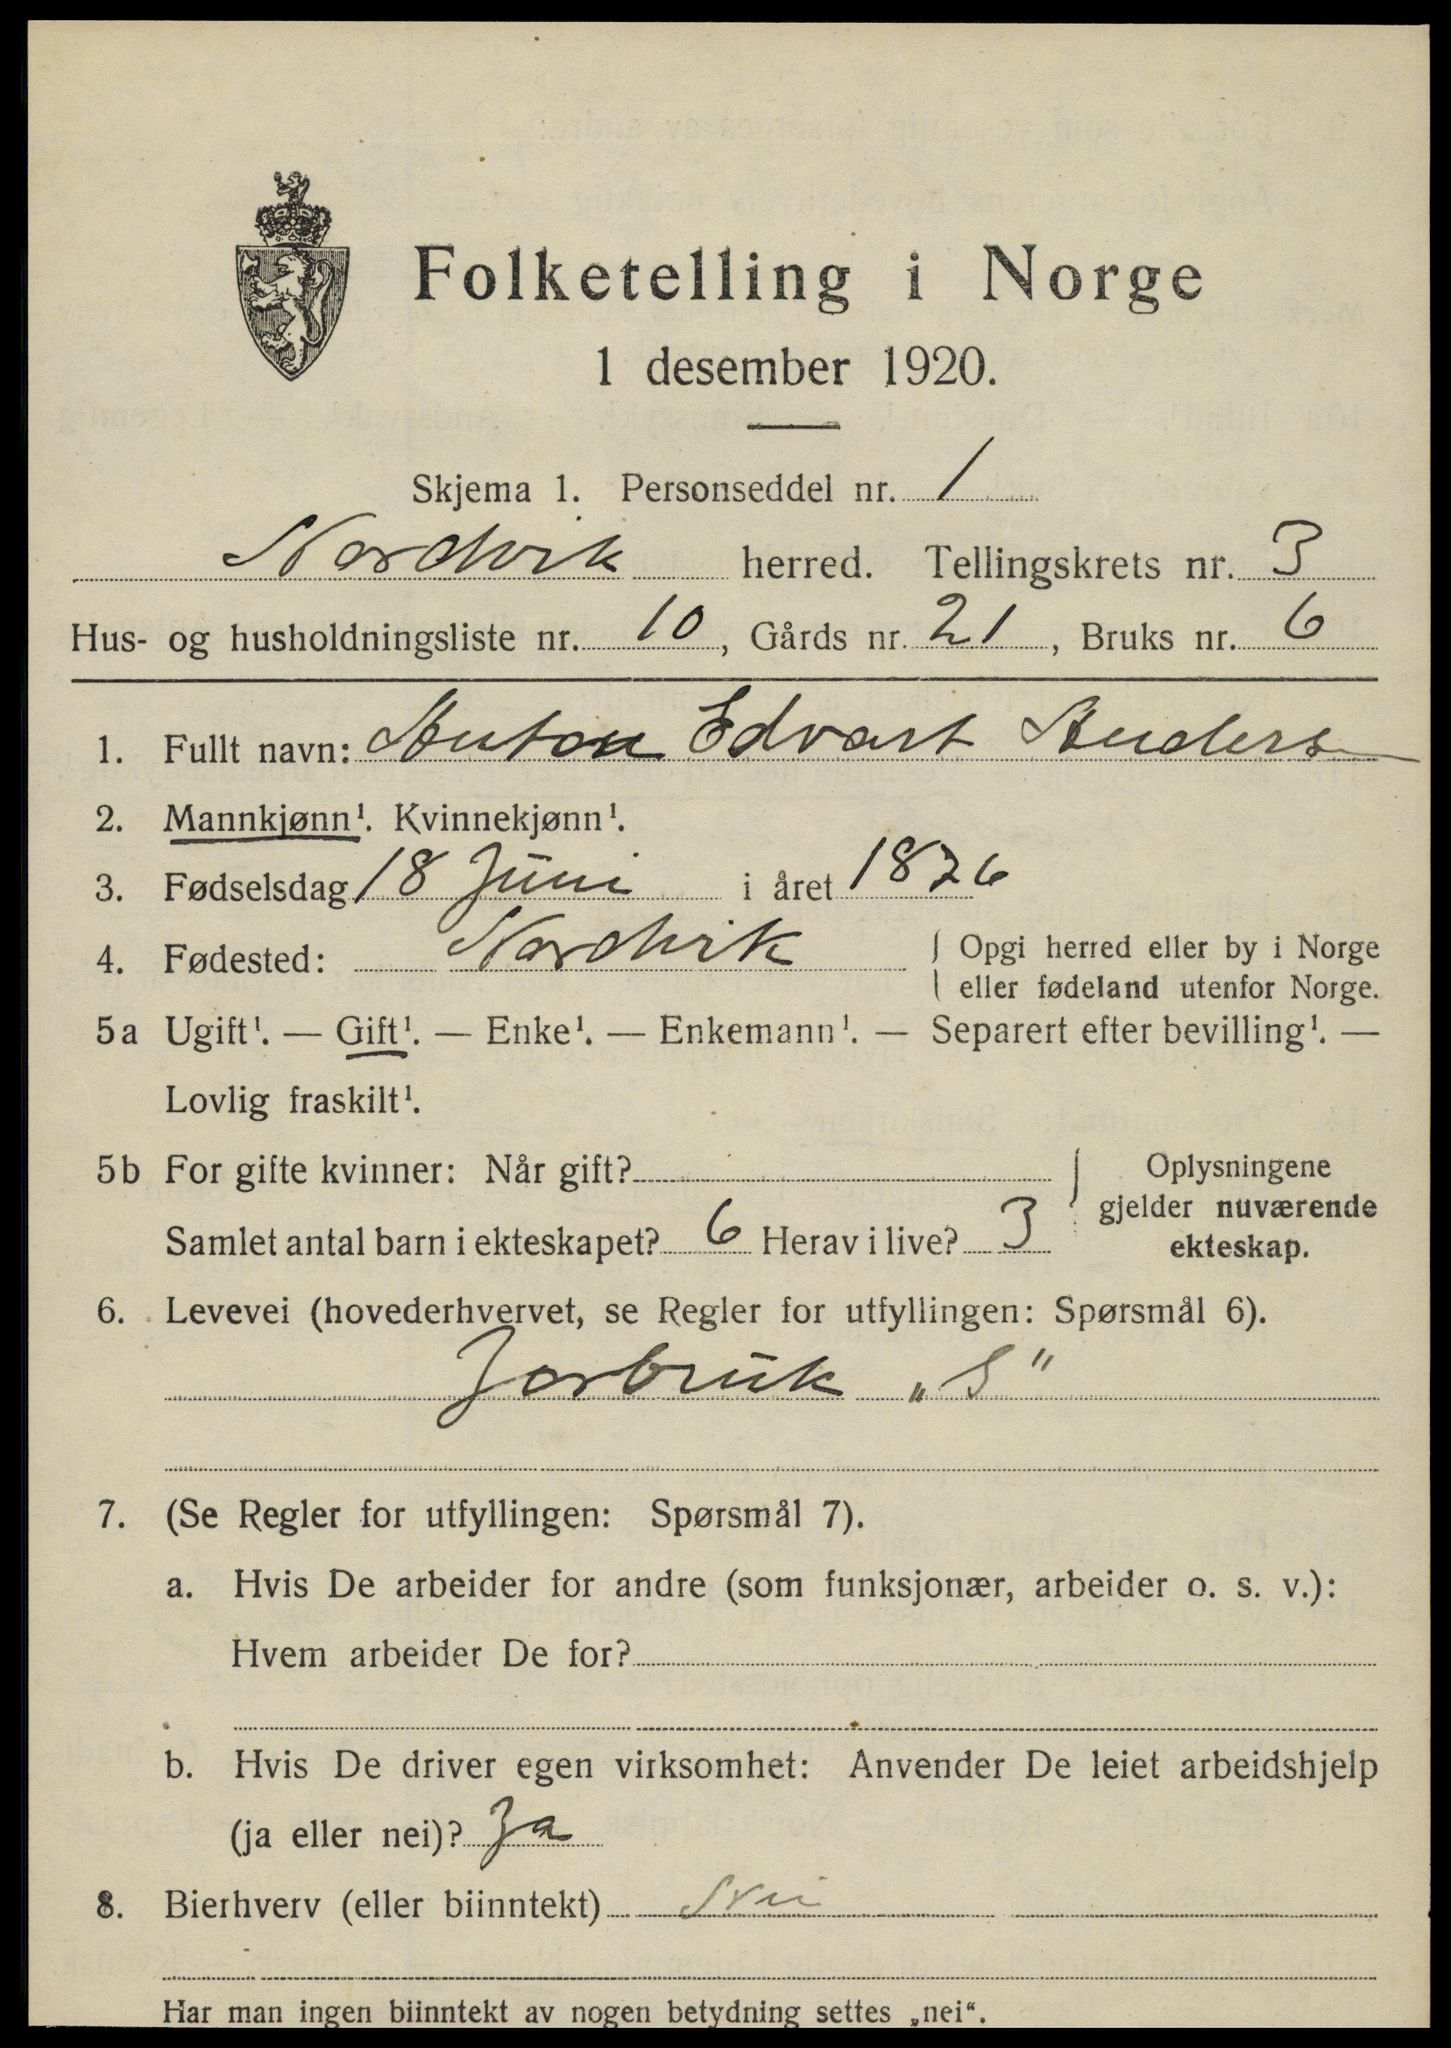 Folketelling i Norge
1 desember 1920.
Skjema 1. Personseddel nr. 1
Nordvik herred. Tellingskrets nr. 3
Hus- og husholdningsliste nr. 10, Gårds nr. 21, Bruks nr. 6
1. Fullt navn: Anton Edvart Anders
2. Mannkjønn¹. Kvinnekjønn¹.
3. Fødselsdag 18 Juni i året 1876
4. Fødested: Nordvik { Opgi herred eller by i Norge
eller fødeland utenfor Norge.
5a Ugift¹. — Gift¹. — Enke¹. — Enkemann¹. — Separert efter bevilling¹. —
Lovlig fraskilt¹.
5b For gifte kvinner: Når gift? } Oplysningene
gjelder nuværende
Samlet antal barn i ekteskapet? 6 Herav i live? 3 ekteskap.
6. Levevei (hovederhvervet, se Regler for utfyllingen: Spørsmål 6).
Jorbruk „S"
7. (Se Regler for utfyllingen: Spørsmål 7).
a. Hvis De arbeider for andre (som funksjonær, arbeider o. s. v.):
Hvem arbeider De for?
b. Hvis De driver egen virksomhet: Anvender De leiet arbeidshjelp
(ja eller nei)? Ja
8. Bierhverv (eller biinntekt) Nei
Har man ingen biinntekt av nogen betydning settes „nei“.